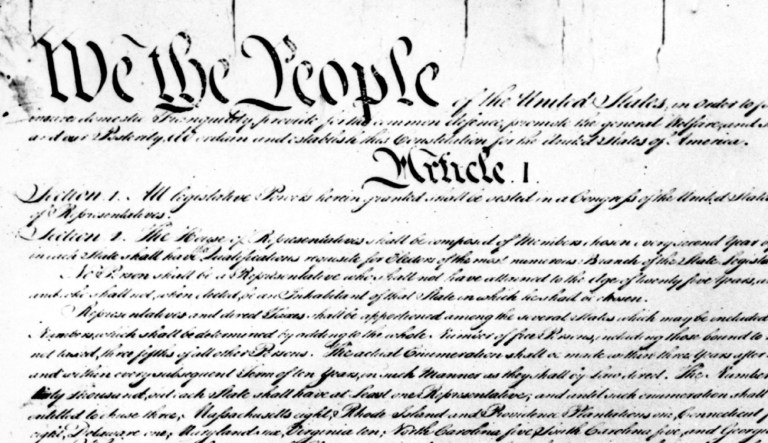 We the People of the United States, in Order to
insure domestic Tranquility, provide for the common defence, promote the general Welfare, and
and our Posterity, do ordain and establish this Constitution for the United States of America.
Article. I.
Section. 1. All legislative Powers herein granted shall be vested in a Congress of the United States
of Representatives.
Section. 2. The House of Representatives shall be composed of Members chosen every second Year
in each State shall have the Qualifications requisite for Electors of the most numerous Branch of the State
No Person shall be a Representative who shall not have attained to the Age of twenty five Years,
and who shall not, when elected, be an Inhabitant of that State in which he shall be chosen.
Representatives and direct Taxes shall be apportioned among the several States which may be included
Numbers, which shall be determined by adding to the whole Number of free Persons, including those bound to
not taxed, three fifths of all other Persons. The actual Enumeration shall be made within three Years after
and within every subsequent Term of ten Years, in such Manner as they shall by Law direct. The Number
thirty Thousand, but each State shall have at Least one Representative; and until such enumeration shall
entitled to chuse three, Massachusetts eight, Rhode Island and Providence Plantations one, Connecticut
eight, Delaware one, Maryland six, Virginia ten, North Carolina five, South Carolina five, and